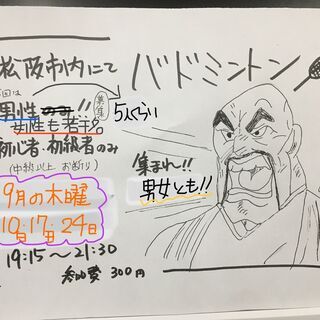 松阪市内にて
バドミントン
今回は
男性のみ!!
募集
5人くらい
女性も若干名
初心者・初級者のみ
(中級以上 お断り)
集まれ!!
男女とも!!
9月の木曜
10日・17日・24日
19:15〜21:30
参加費 300円